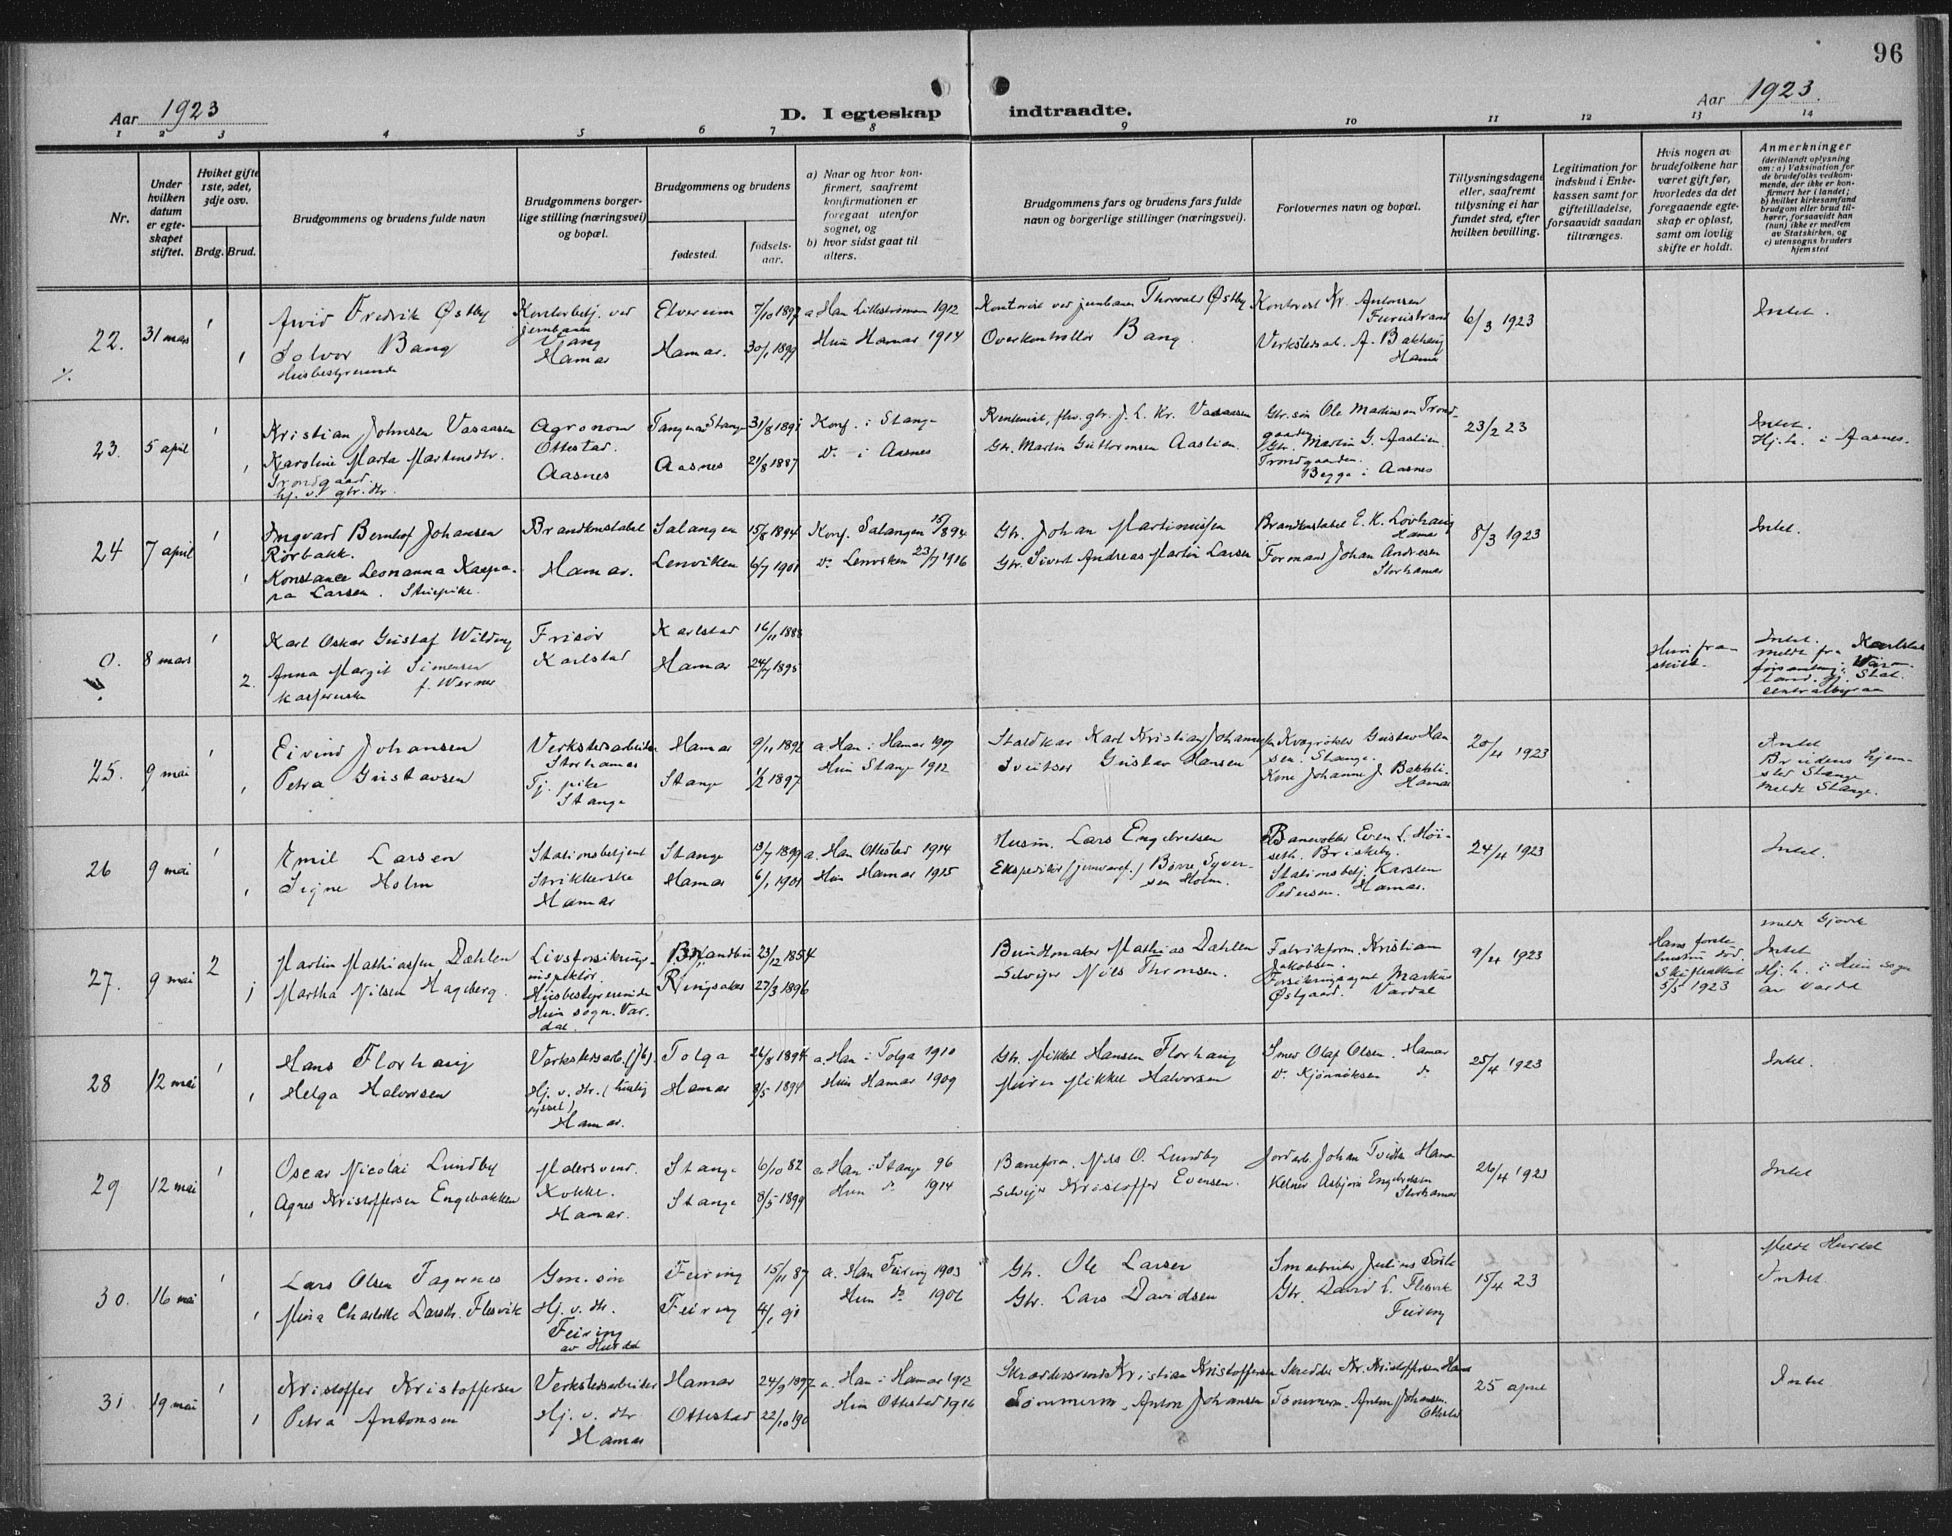 96
Aar 1923
D. I egteskap indtraadte.
Aar 1923.
1 2 3 4 5 6 7 8 9 10 11 12 13 14
Nr.
Under hvilken datum er egteskapet stiftet.
Hviket gifte 1ste, 2det, 3dje osv.
Brdg. Brud.
Brudgommens og brudens fulde navn
Brudgommens borgerlige stilling (næringsvei) og bopæl.
Brudgommens og brudens
fødested.
fødselsaar.
a) Naar og hvor konfirmert, saafremt konfirmationen er foregaat utenfor sognet, og
b) hvor sidst gaat til alters.
Brudgommens fars og brudens fars fulde navn og borgerlige stillinger (næringsvei).
Forlovernes navn og bopæl.
Tillysningsdagene eller, saafremt tillysning ei har fundet sted, efter hvilken bevilling.
Legitimation for indskud i Enkekassen samt for giftetilladelse, forsaavidt saadan tiltrænges.
Hvis nogen av brudefolkene har været gift før, hvorledes da det foregaaende egteskap er opløst, samt om lovlig skifte er holdt.
Anmerkninger
(deriblandt oplysning om: a) Vaksination for de brudefolks vedkommende, der ikke er konfirmert her i landet; b) hvilket kirkesamfund brudgom eller brud tilhører, forsaavidt han (hun) ikke er medlem av Statskirken, og c) utensogns bruders hjemsted
22. 31 mars 1 Arvid Fredrik Østby Kontorbetj. ved jernbanen Vang Elverum 7/10 1897 a Han Lillestrømmen 1912 Kontorist ved jernbanen Thorvald Østby Kontorist Kr. Antonsen Furustrand 6/3 1923 Intet.
1 Solvor Bang Husbestyrerinde Hamar Hamar. 30/1 1899 Hun Hamar 1914 Overkontrollør Bang. Verkstedsarb. A. Bakhaug Hamar
23. 5 april 1 Kristian Johnsen Vasaasen Agronom Ottestad. Tangen Stange 31/8 1891 Konf. i Stange Rentenist, fhv. gbr. J. L. Kr. Vasaasen Gbr. søn Ole Martinsen Trondgaarden. 23/2 23 Intet.
1 Karoline Marta Martinsdtr. Trondgaard hj. v. gbr. dtr. Aasnes Aasnes 21/8 1887 Do i Aasnes Gbr. Martin Guttormsen Aaslien. Gbr. Martin G. Aaslien. Trondgaarden. Begge i Aasnes Hj.h. i Aasnes.
24 7 april 1 Ingvard Bernhof Johansen Rørbakk. Brandkonstabel Salangen 15/8 1894 Konf. Salangen 15/8 94 Gbr. Johan Martinussen Brandkonstabel E. K. Lovhaug Hamar 8/3 1923 Intet.
1 Konstance Leonanna Kaspara Larsen. Stuepike. Hamar. Lenviken 6/7 1901 Do Lenviken 23/7 1916 Gbr. Sivert Andreas Martin Larsen Formand Johan Andresen Storhamar
0. 8 mars 1 Karl Oskar Gustaf Wilding Frisør Karlstad Karlstad 16/11 1888 Hun fraskilt. Intet. Meldt fra Karlstad
2. Anna Margit Simensen f. Werner Kasfererske Hamar 24/7 1895 församling, Värmland, gj. Stat. centralbyraa
25. 9 mai 1 Eivind Johansen Verkstedsarbeider Storhamar Hamar 9/11 1892 a. Han i Hamar 1907 Staldkar Karl Kristian Johansen Kvægrøkter Gustav Hansen. Stange. 20/4 1923 Intet
1 Petra Gustavsen Tj. pike Stange Stange 1/2 1897 Hun Stange 1912 Sveitser Gustav Hansen Kone Johanne J. Bakkeli. Hamar Brudens hjemsted Stange Meldt Stange.
26 9 mai 1 Emil Larsen Stationsbetjent Stange 13/7 1899 a. Han Ottestad 1914 Husm. Lars Engebretsen Banevokter Even L. Høiseth. Briskeby. 24/4 1923 Intet.
1 Signe Holm Strikkerske Hamar Hamar 6/1 1901 Hun Hamar 1915 Ekspeditør (jernvaref.) Børre Syversen Holm. Stationsbetj. Karsten Pedersen. Hamar.
27. 9 mai 2 Martin Mathiassen Dæhlen Livsforsikringsinspektør Brandbu 23/12 1854 Bundtmaker Mathias Dæhlen Fabrikform. Kristian Jakobsen. 9/4 1923 Hans forste hustru død. Skifteattest 5/5 1923 meldt Gjøvik Intet
1 Martha Nilsen Hageberg. Husbestyrerinde Hun sogn. Vardal. Ringsaker 27/3 1896 Selveier Nils Thronsen. Forsikringsagent Markus Østgaard. Vardal Hj.h. i Hun sogn av Vardal
28 12 mai 1 Hans Florhaug Verkstedsarb. (Jb). Tolga 26/8 1894 a. Han i Tolga 1910 Gbr. Mikkel Hansen Florhaug Smed Olaf Olsen. Hamar 25/4 1923 Intet.
1 Helga Halvorsen Hj. v. dtr. (huslig syssel) Hamar. Hamar 8/5 1894 Hun Hamar 1909 Murer Mikkel Halvorsen Do Kjønniksen Do
29 12 mai 1 Oscar Nicolai Lundby Malersvend. Stange 6/10 82 a. Han i Stange 96 Baneform. Nils O. Lundby Jordarb. Johan Tvidt Hamar 26/4 1923 Intet
1 Agnes Kristoffersen Engebakken Kokke. Hamar. Stange 8/5 1899 Hun Do 1914 Selveier Kristoffer Evensen. Kelner Asbjørn Engebretsen Storhamar
30. 16 mai 1 Lars Olsen Fagernes Gm. søn Feiring 15/11 87 a. Han Feiring 1903 Gbr. Ole Larsen Smarbeider Julius 15/4 23 Meldt Hurdal Intet.
1 Mina Charlotte Larsdtr. Flesvik Hj. v. dtr. Feiring av Hurdal Feiring 4/1 91 Hun Do 1906 Gbr. Lars Davidsen Gbr. David L. Flesvik Feiring
31 19 mai 1 Kristoffer Kristoffersen Verkstedsarbeider Hamar 24/9 1897 a. Han i Hamar 1912 Skræddersvend Kristian Kristoffersen Skrædder Kr. Kristoffersen Hamar 25 april Intet
1 Petra Antonsen Hj. v. dtr. Hamar Ottestad 22/10 190 Hun Ottestad 1916 Tømmerm. Anton Johansen Tømmerm. Anton Johansen. Ottestad